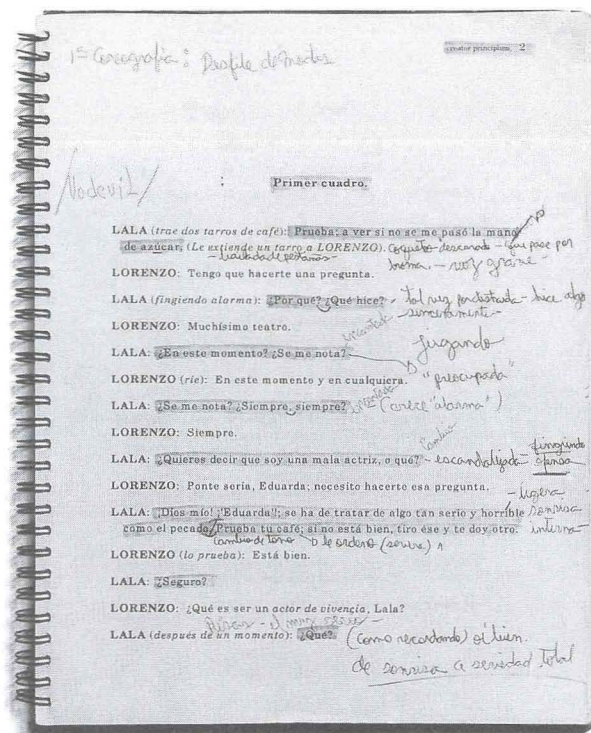 creator principium, 2
1ª Coreografía: Desfile de modas
/Vodevil/
: Primer cuadro.
LALA (trae dos tarros de café): Prueba; a ver si no se me pasó la mano
de azúcar. (Le extiende un tarro a LORENZO). coqueteo descarado - que pase por
broma. - voz grave -
LORENZO: Tengo que hacerte una pregunta.
LALA (fingiendo alarma): ¿Por qué? ¿Qué hice? - tal vez por distraída - hice algo
- sinceramente -
LORENZO: Muchísimo teatro.
LALA: ¿En este momento? ¿Se me nota? jugando
LORENZO (ríe): En este momento y en cualquiera. "preocupada"
LALA: ¿Se me nota? ¿Siempre, siempre? (crece "alarma")
LORENZO: Siempre.
cambio
LALA: ¿Quieres decir que soy una mala actriz, o qué? - escandalizada - fingiendo
ofensa
LORENZO: Ponte seria, Eduarda; necesito hacerte esa pregunta.
- ligera
LALA: ¡Dios mío! ¡'Eduarda'!; se ha de tratar de algo tan serio y horrible sonrisa
como el pecado. Prueba tu café; si no está bien, tiro ése y te doy otro. interna -
cambio de tono le ordeno (severa)
LORENZO (lo prueba): Está bien.
LALA: ¿Seguro?
LORENZO: ¿Qué es ser un actor de vivencia, Lala?
LALA (después de un momento): ¿Qué? (como recordando) oí bien.
de sonrisa a seriedad total